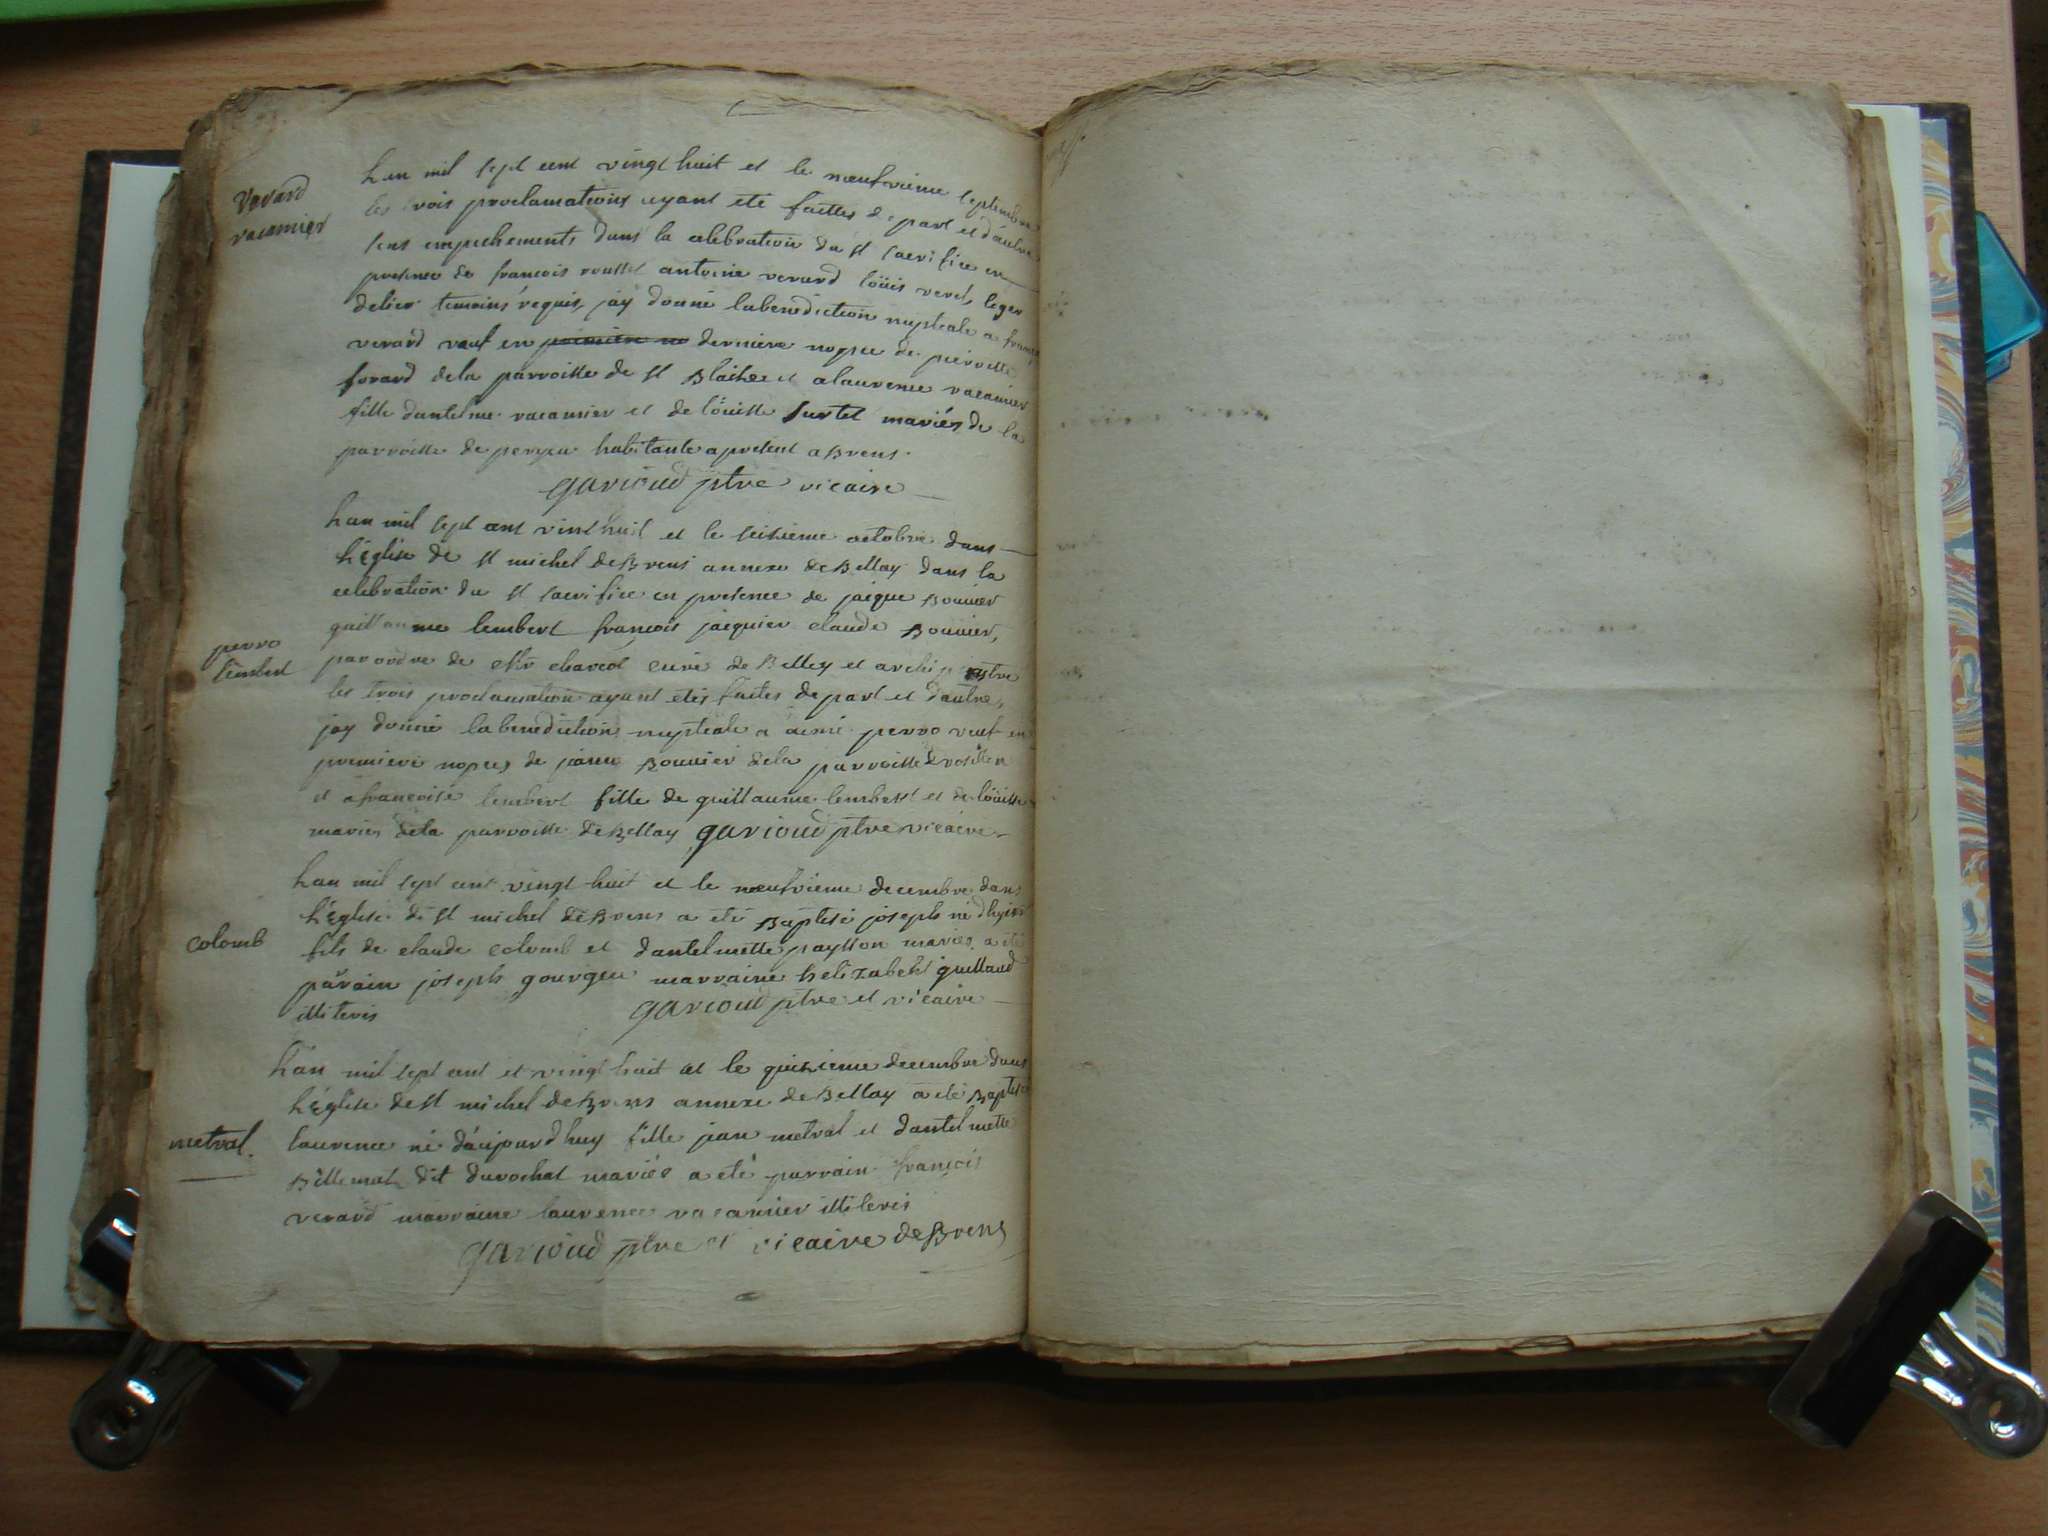 verard
vacamier
Lan mil sept cent vingt huit et le neufvieme septembre
les trois proclamations ayant ete faittes de part et dautre
sens empechements dans la celebration du st sacrifice en
presence de francois roussel antoine verard loüis veret, leger
delier temoins requis, jay donné la benediction nuptiale a franc
verard veuf en premiere no derniere nopce de perrotte
forard de la parroisse de st Blaise et a laurence vacamier
fille dantelme vacamier et de loüisse surtet mariés de la
parroisse de peyzeu habitante a present a Brens.
garioud ptre vicaire
perro
lembert
Lan mil sept cent vint huit et le seisieme octobre dans
LEglise de st michel de Brens annexe de Bellay dans la
celebration du st sacrifice en presence de jacque Bouvier
guillaume lembert françois jacquier claude Bouvier,
par ordre de curé de Belley et archiprestre
les trois proclamation ayant etés faites de part et dautre,
jay donné la benediction nuptiale a aimé perro veuf en
premiere nopces de Bouvier de la parroisse de
et a francoise lembert fille de guillaume lembert et de loüisse
mariés de la parroisse de Bellay garioud ptre vicaire
colomb
Lan mil sept cent vingt huit et le neufvieme decembre dans
LEglise de st michel de Brens a eté Baptisé joseph né dhyer
fils de claude colomb et dantelmette paysson mariés a eté
parain joseph gourgeu marraine helizabeht guillaud
illiteris garioud ptre et vicaire
metral.
Lan mil sept cent et vingt huit et le quisieme decembre dans
LEglise de st michel de Brens annexe de Bellay a eté Baptisé
laurence né daujourdhuy fille jean metral et dantelmette
Billemat dit durochat mariés a eté parrain françois
verard marraine laurence vacamier illiteris
garioud ptre et vicaire de Brens